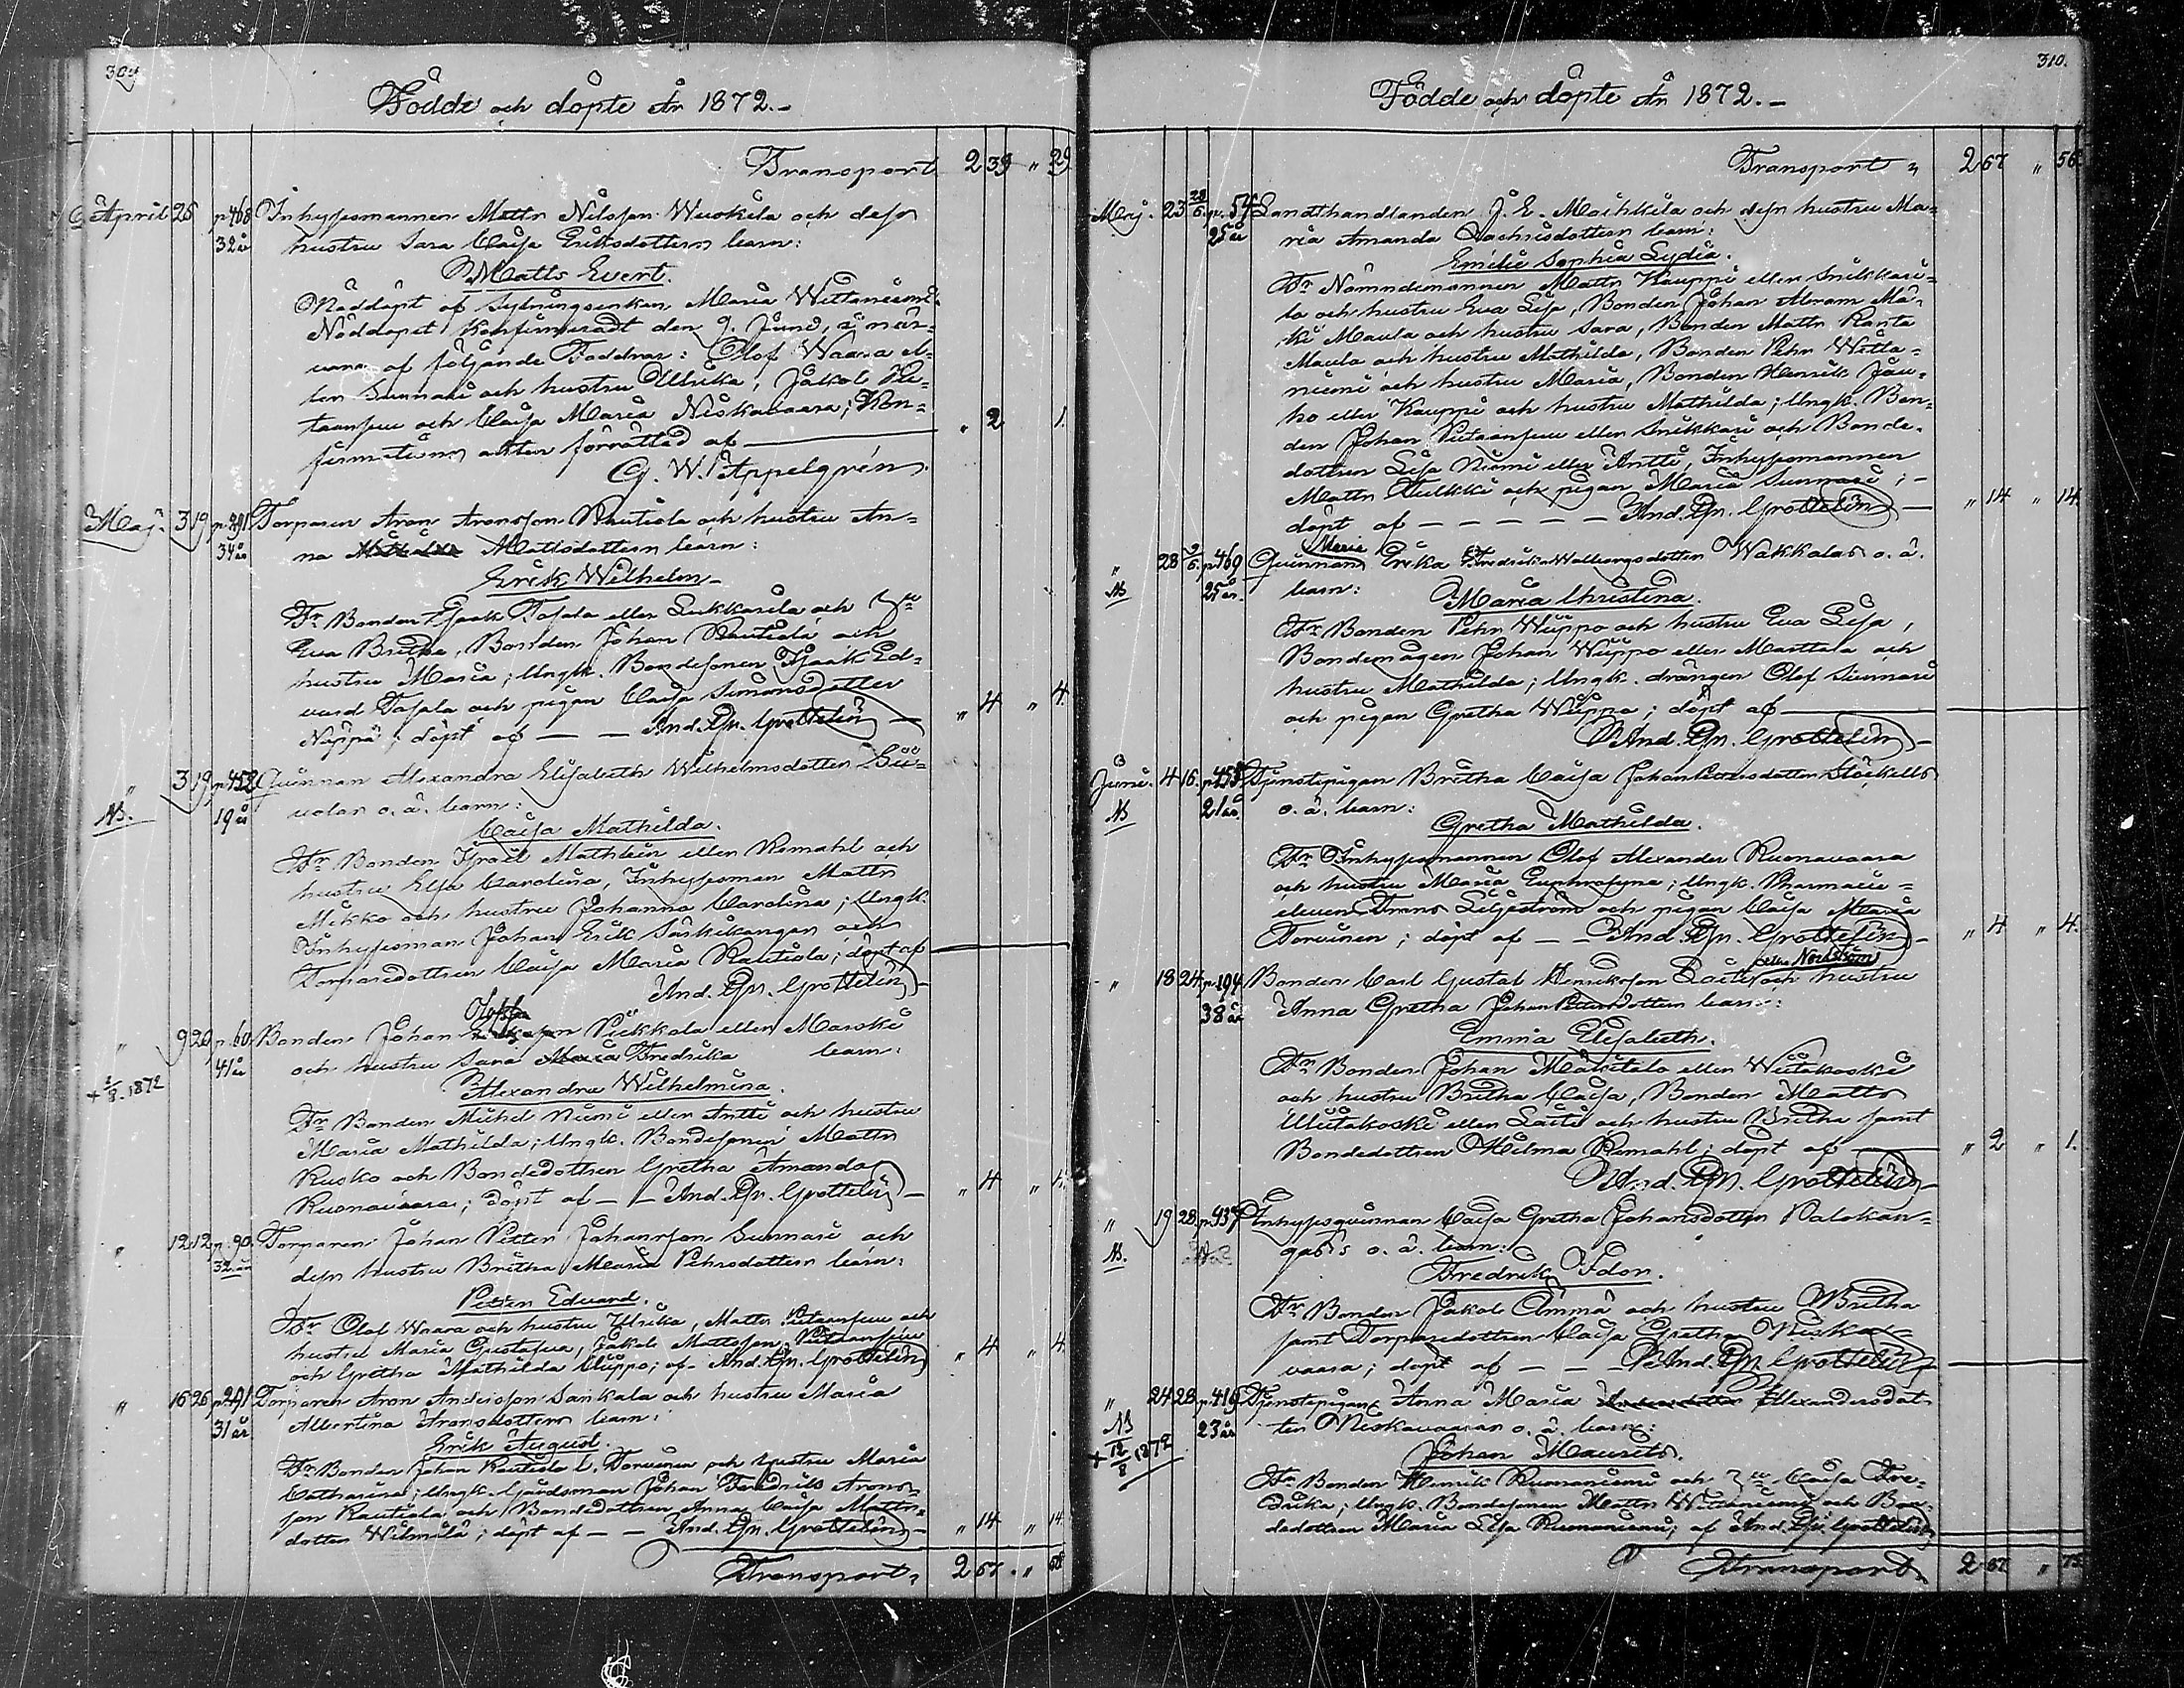 309
Födde och döpte År 1872.-
Transport 2 39 " 29
April 25 p. 468 Inhysesmannen Matts Nilsson Wuokila och dess
32 år hustru Sara Caisa Eriksdotters barn:
Matts Evert.
Nöddöpt af Sytningsenkan Maria Wittaniemi.
Nöddopet konfirmeradt den 9. Juni, i när-
varo af följande Faddrar: Olof Waara el-
ler Sunnari och hustru Ullrika, Jakob
och Caisa Maria Niskavaara; Kon-
firmations akten förrättad af " 2 1.
G. W. Appelgrén
Maj. 3 19 p. 291 Torparen Aron Aronsson Rautiola och hustru An-
34 år na Mattsdotters barn:
Erik Wilhelm
Fr Bonden Isaak Tapala eller Lukkarila och
Eva Britha, Bonden Johan Rautiola och
hustru Maria; Ungk. Bondesonen Isaak Ed-
vard Tapala och pigan Caisa Simonsdotter
Näppä; döpt af — — And. Gr. Grottelin " 4 " 4.
" 3 19 p. 452 Quinnan Alexandra Elisabeth Wilhelmsdotter
NB. 19 år o. ä. barn:
Caisa Mathilda.
Fr Bonden Israel Mathlein eller Remahl och
hustru Elsa Carolina, Inhysesman Matts
Mikko och hustru Johanna Carolina; Ungk.
Inhysesman Johan Erik Särkikangas och
Torparedottren Caisa Maria Rautiola; döpt af
And. Gr. Grottelin
Olofsson
" 9 20 p. 60 Bonden Johan Piekkala eller Marski
41 år och hustru Sara Maria Fredrika barn:
+ 1872
Alexandra Wilhelmina.
Fr Bonden Michel Niemi eller Antti och hustru
Maria Mathilda; Ungk. Bondesonen Matts
Rusko och Bondedottren Gretha Amanda
Ruonavaara; döpt af — — And. Gr. Grottelin " 4 " 4.
" 12 12 p. 90 Torparen Johan Petter Johansson Sunnari och
32 år dess hustru Britha Maria Pehrsdotters barn:
Petter Edvard.
Fr Olof Waara och hustru Ulrika, Matts och
hustru Maria Gustafva, Jakob Mattsson
och Gretha Mathilda Wüppo; af - And. Gr. Grottelin " 4 " 4.
" 16 26 p. 291 Torparen Aron Andersson Sankala och hustru Maria
31 år Albertina Aronsdotters barn:
Erik August.
Fr Bonden Johan Rautiola l. Torvinen och hustru Maria
Catharina; Ungk. Gårdsman Johan Fredrik Arons-
son Rautiola och Bondedottren Anna Caisa Matts-
dotter Wilmilä; döpt af — — And. Gr. Grottelin " 14 " 14
Transport 2 67 " 56
310.
Födde och döpte År 1872.-
Transport " 2 67 " 56
Maj. 23 p. 54 Landthandlanden J. E. Maihkila och dess hustru Ma-
25 år ria Amanda Zachrisdotters barn:
Emilie Sophia Lydia.
Fr Nämndemannen Matts Kauppi eller Snikkari-
la och hustru Eva Lisa, Bonden Johan Abram Mä-
ki Maula och hustru Sara, Bonden Matts Ranta
Maula och hustru Mathilda, Bonden Pehr Witta-
niemi och hustru Maria, Bonden Henrik Jau-
ho eller Kauppi och hustru Mathilda; Ungk. Bon-
den Johan eller Snikkari och Bonde-
dottren Lisa Niemi eller Antti, Inhysesmannen
Matts Kulkki och pigan Maria Sunnari; -
döpt af — — — — — And. Gr. Grottelin " 14 " 14.
Maria
" 28 p. 469 Quinnan Erika Fredrika Walborgsdotter Wakkalas o. ä.
NB 25 år. barn:
Maria Christina.
Fr Bonden Pehr Wüppo och hustru Eva Lisa,
Bondemågen Johan Wüppo eller Marttala och
hustru Mathilda; Ungk. drängen Olof Sunnari
och pigan Gretha Wüppo; döpt af
And. Gr. Grottelin
Juni. 4 16. p. 455 Tjenstepigan Britha Caisa Johan Petersdotter Stöckells
NB 21 år o. ä. barn:
Gretha Mathilda.
Fr Inhysesmannen Olof Alexander Ruonavaara
och hustru Maria Euphrosyna; Ungk. Pharmacie-
eleven Frans Liljeström och pigan Caisa Maria
Torvinen; döpt af — — And. Gr. Grottelin " 4 " 4.
eller Norström
" 18 24 p. 194 Bonden Carl Gustaf Henriksson Laiti och hustru
38 år Anna Gretha Johan Pettersdotters barn:
Emma Elisabeth.
Fr Bonden Johan Mäkitalo eller Wiitakoski
och hustru Britha Caisa, Bonden Matts
Wiitakoski eller Laiti och hustru Britha samt
Bondedottren Hilma Remahl; döpt af " 2 " 1.
And. Gr. Grottelin
" 19 28 p. 437 Inhysesquinnan Caisa Gretha Johansdotter Palokan-
NB. gas's o. ä. barn:
Fredrik Idon.
Fr Bonden Jakob Ämmä och hustru Britha
samt Torparedottren Caisa Gretha Niska-
vaara; döpt af — — And. Gr. Grottelin
" 24 28 p. 419 Tjenstepigan Anna Maria Alexandersdot-
NB 23 år ter Niskavaaras o. ä. barn:
+ 12/8 1872
Johan Maurits.
Fr Bonden Henrik Ruonaniemi och Caisa Fre-
drika; Ungk. Bondesonen Matts Wittaniemi och Bon-
dedottren Maria Lisa Ruonaniemi; af And. Gr. Grottelin
Transport 2 87 " 75